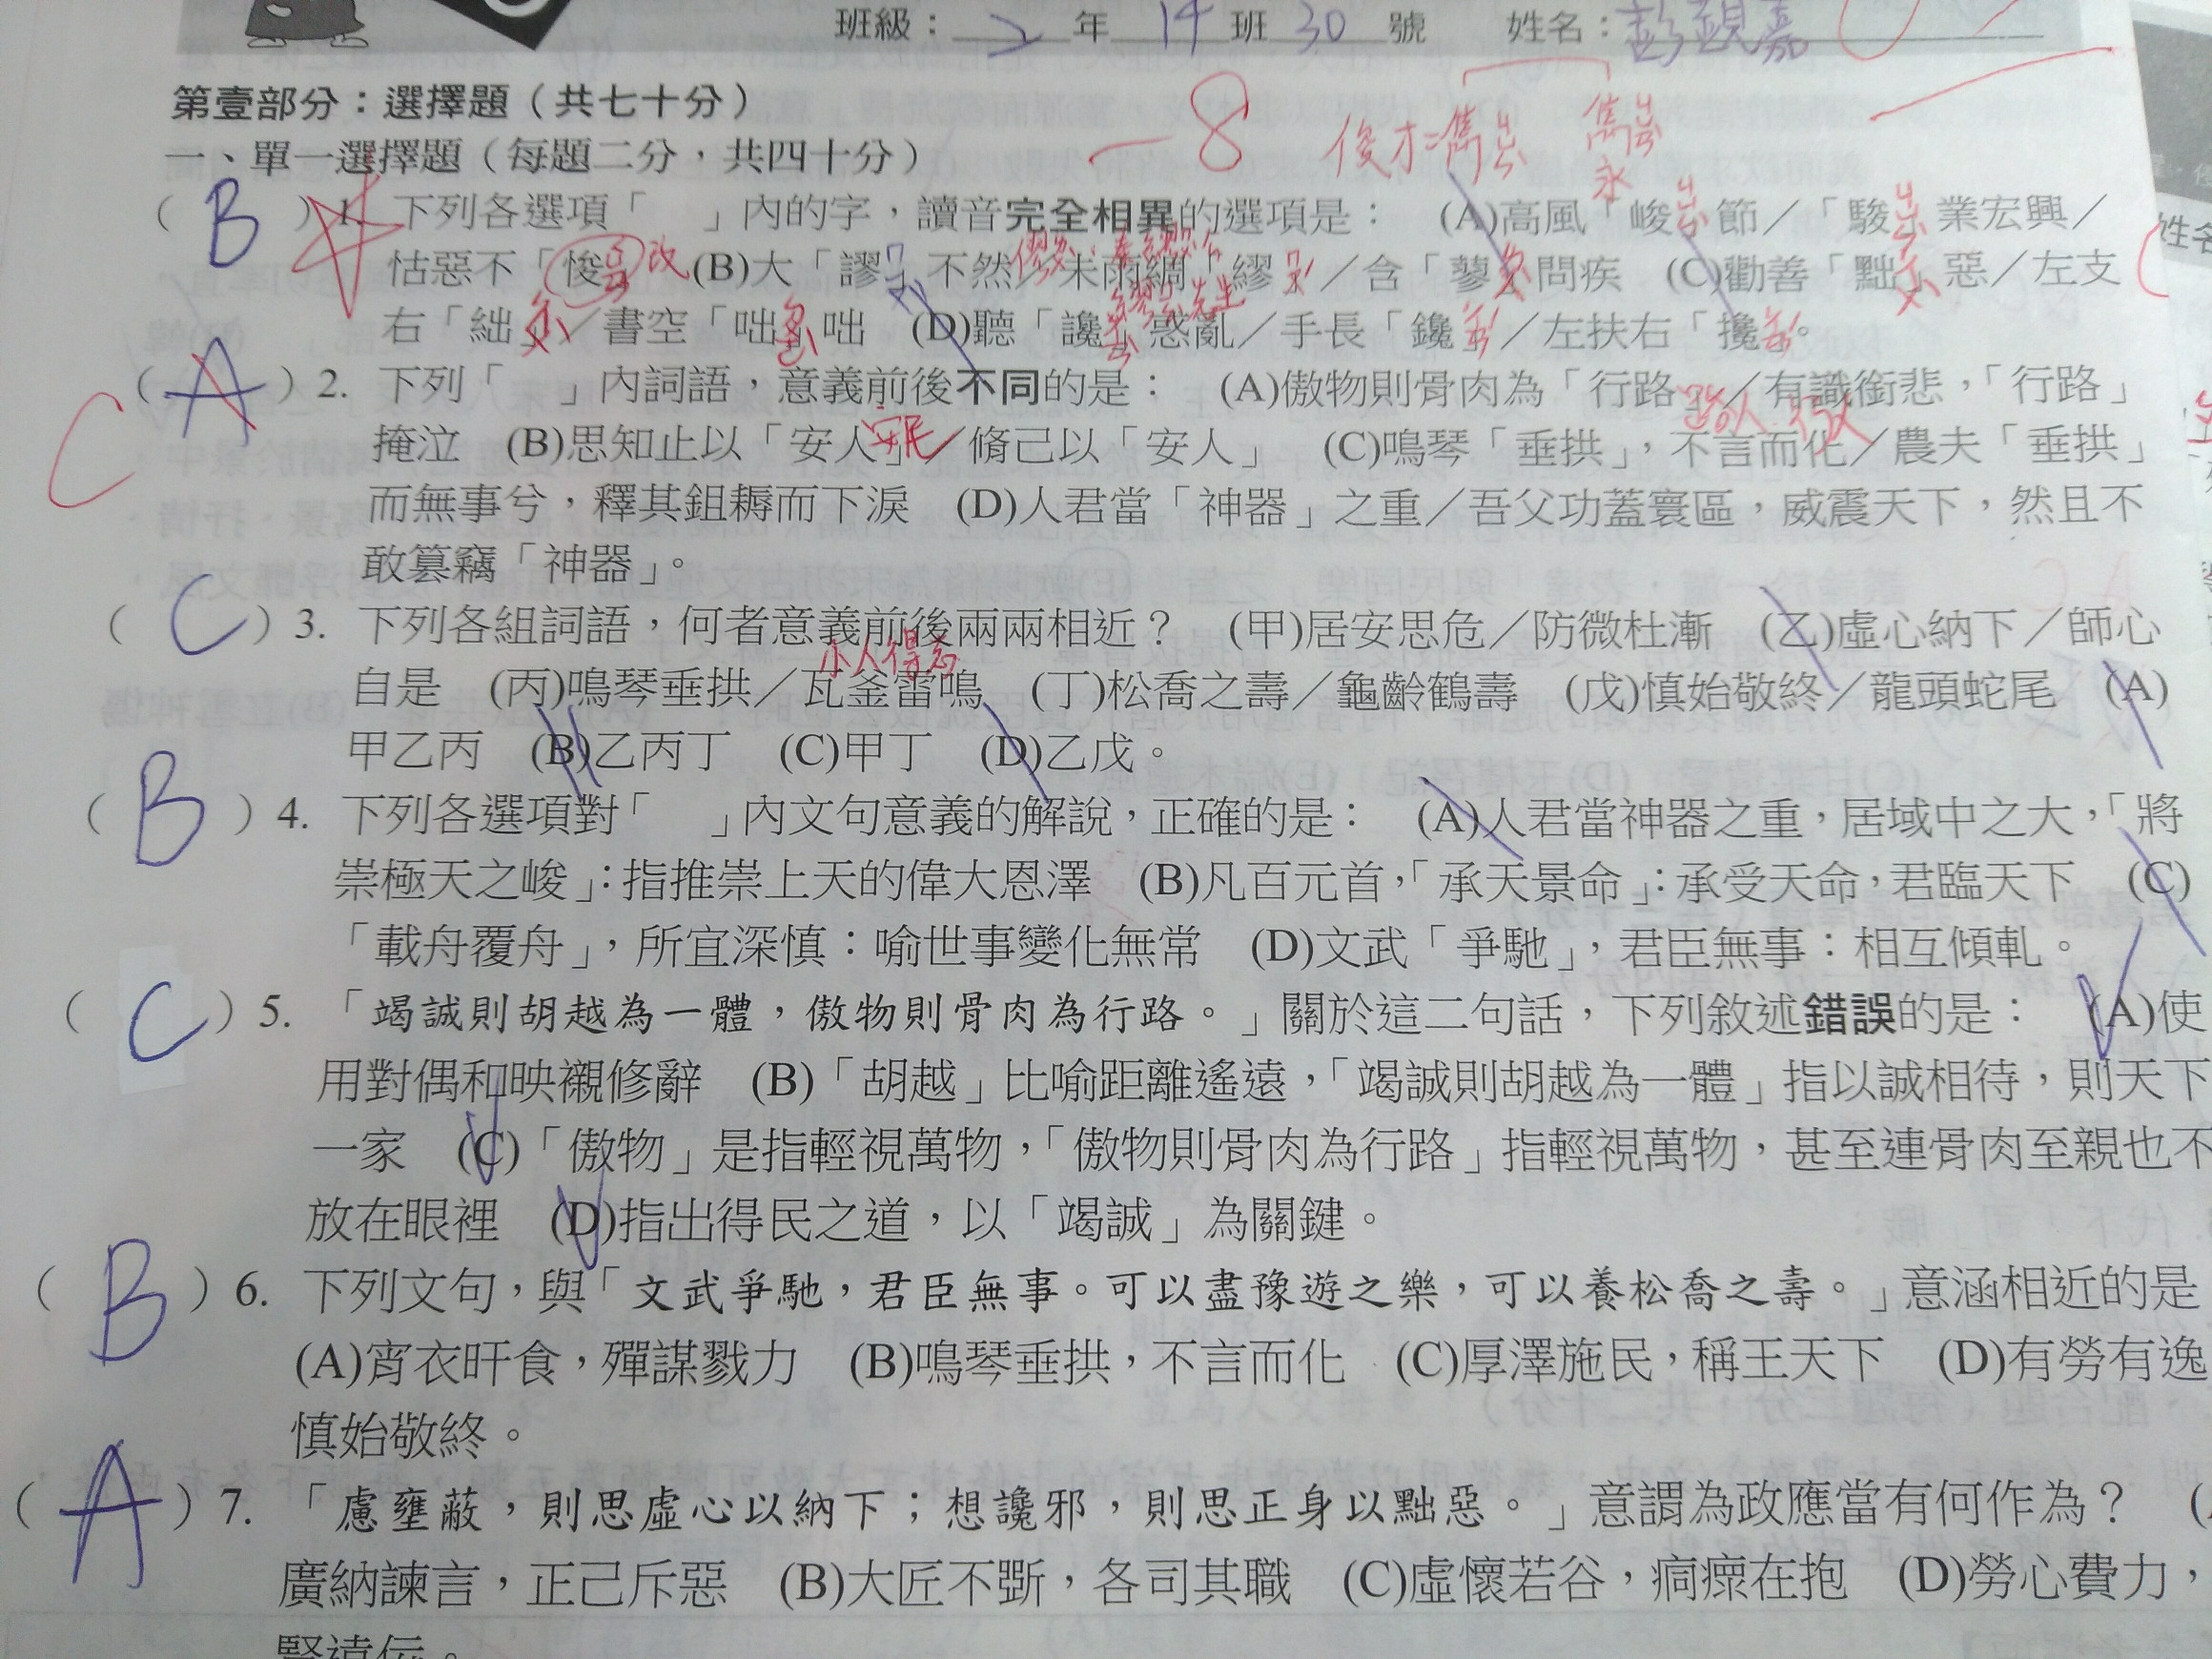 班級：2年14班30號 姓名：
第壹部分：選擇題（共七十分）
-8
一、單一選擇題（每題二分，共四十分）
( B )1. 下列各選項「 」內的字，讀音完全相異的選項是： (A)高風「峻」節／「駿」業宏興／
怙惡不「悛」 改 (B)大「謬」不然／未雨綢「繆」／含「蓼」問疾 (C)勸善「黜」惡／左支
右「絀」／書空「咄」咄 (D)聽「讒」惑亂／手長「鑱」／左扶右「攙」。
( A ) C 2. 下列「 」內詞語，意義前後不同的是： (A)傲物則骨肉為「行路」／有識銜悲，「行路」
路人
掩泣 (B)思知止以「安人」／脩己以「安人」 (C)鳴琴「垂拱」，不言而化／農夫「垂拱」
安民
而無事兮，釋其鉏耨而下淚 (D)人君當「神器」之重／吾父功蓋寰區，威震天下，然且不
敢篡竊「神器」。
( C )3. 下列各組詞語，何者意義前後兩兩相近？ (甲)居安思危／防微杜漸 (乙)虛心納下／師心
小人得志
自是 (丙)鳴琴垂拱／瓦釜雷鳴 (丁)松喬之壽／龜齡鶴壽 (戊)慎始敬終／龍頭蛇尾 (A)
甲乙丙 (B)乙丙丁 (C)甲丁 (D)乙戊。
( B )4. 下列各選項對「 」內文句意義的解說，正確的是： (A)人君當神器之重，居域中之大，「將
崇極天之峻」：指推崇上天的偉大恩澤 (B)凡百元首，「承天景命」：承受天命，君臨天下 (C)
「載舟覆舟」，所宜深慎：喻世事變化無常 (D)文武「爭馳」，君臣無事：相互傾軋。
( C )5. 「竭誠則胡越為一體，傲物則骨肉為行路。」關於這二句話，下列敘述錯誤的是： (A)使
用對偶和映襯修辭 (B)「胡越」比喻距離遙遠，「竭誠則胡越為一體」指以誠相待，則天下
一家 (C)「傲物」是指輕視萬物，「傲物則骨肉為行路」指輕視萬物，甚至連骨肉至親也不
放在眼裡 (D)指出得民之道，以「竭誠」為關鍵。
( B )6. 下列文句，與「文武爭馳，君臣無事。可以盡豫遊之樂，可以養松喬之壽。」意涵相近的是
(A)宵衣旰食，殫謀戮力 (B)鳴琴垂拱，不言而化 (C)厚澤施民，稱王天下 (D)有勞有逸
慎始敬終。
( A )7. 「慮壅蔽，則思虛心以納下；想讒邪，則思正身以黜惡。」意謂為政應當有何作為？
廣納諫言，正己斥惡 (B)大匠不斲，各司其職 (C)虛懷若谷，痌瘝在抱 (D)勞心費力，